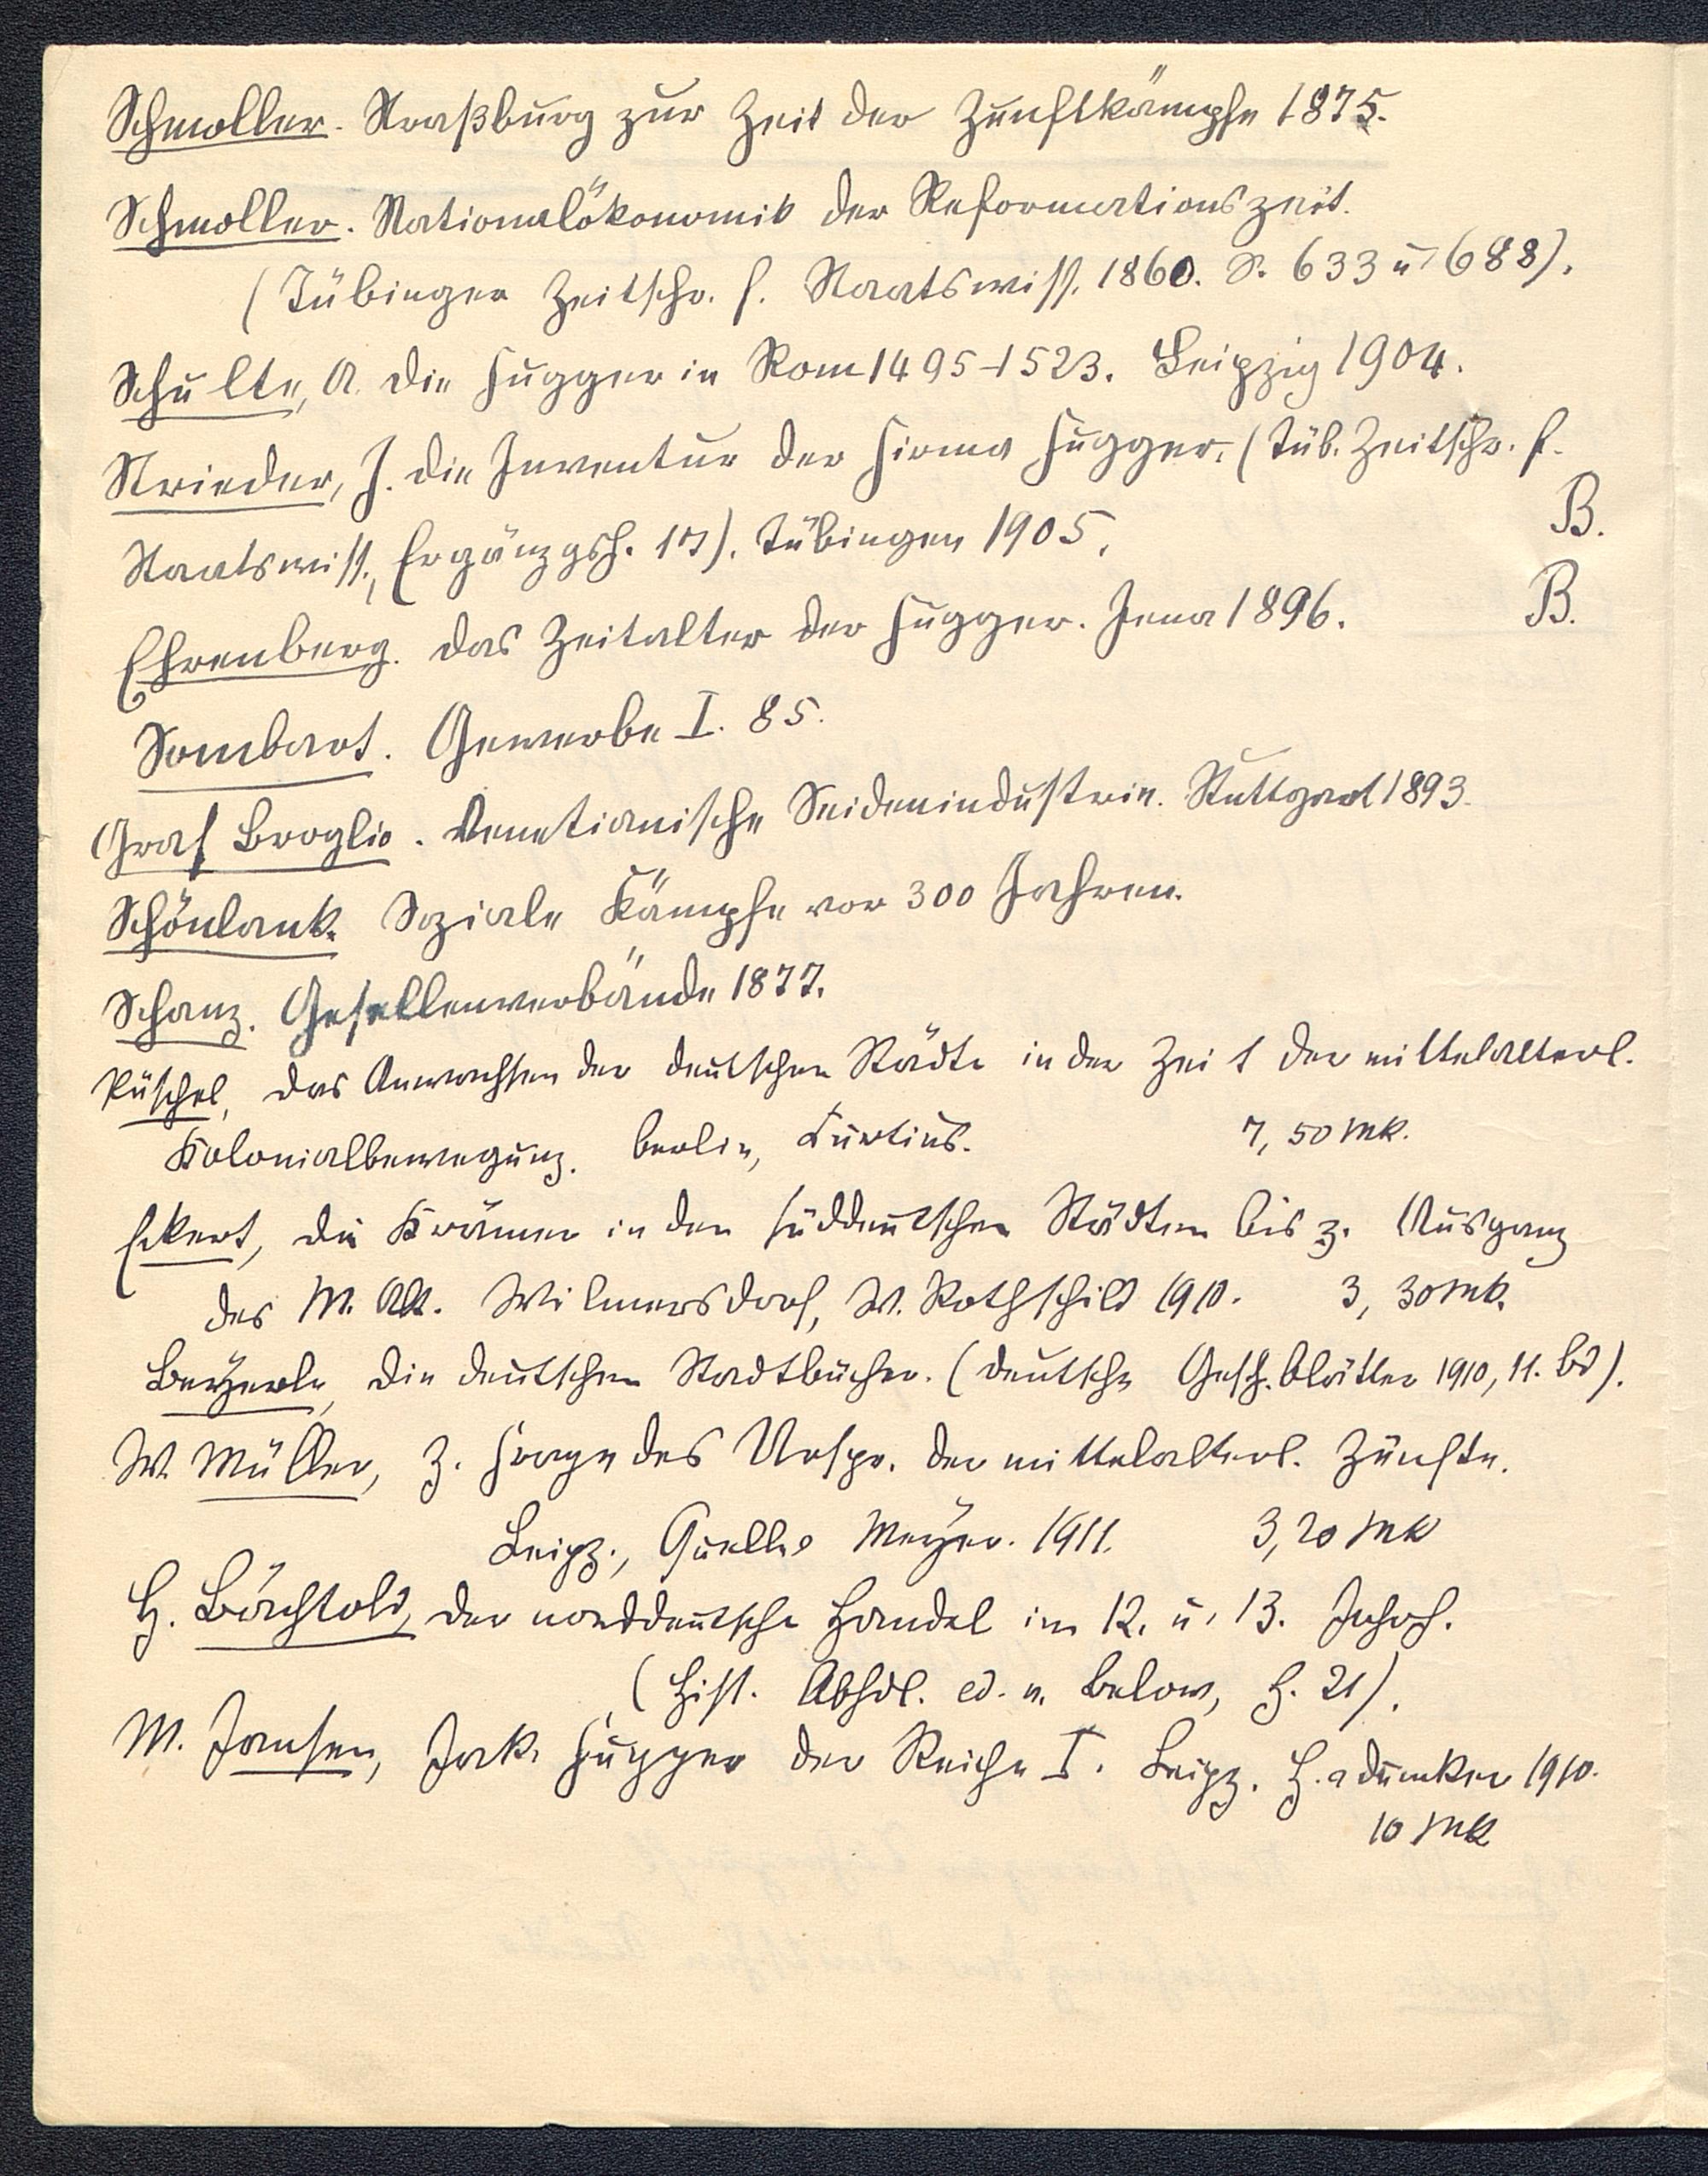 Schmoller. Straßburg zur Zeit der Zunftkämpfe 1875.
Schmoller. Nationalökonomik der Reformationszeit.
(Tübinger Zeitschr. f. Staatswiss. 1860. S. 633 u 688).
Schulte, A. die Fugger in Rom 1495-1523. Leipzig 1904.
Strieder, J. die Inventur der Firma Fugger. (Tüb. Zeitschr. f.
Staatswiss., Ergänzgsh. 17). Tübingen 1905. B.
Ehrenberg. das Zeitalter der Fugger. Jena 1896. B.
Sombart. Gewerbe I. 85.
Graf Broglio. Venetianische Seidenindustrie. Stuttgart 1893.
Schönlank. Soziale Kämpfe vor 300 Jahren.
Schanz. Gesellenverbände 1877.
Püschel, das Anwachsen der deutschen Städte in der Zeit der mittelalterl.
Kolonialbewegung. Berlin, Curtius. 7,50 Mk.
Eckert, die Krämer in den süddeutschen Städten bis z. Ausgang
des M. Alt. Wilmersdorf, W. Rothschild 1910. 3,30 Mk.
Beyerle, die deutschen Stadtbücher. (deutsche Gesch.blätter 1910, 11. Bd).
W. Müller, Z. Frage des Urspr. der mittelalterl. Zünfte.
Leipz., Quelle Meyer. 1911. 3,20 Mk
H. Bächtold, der norddeutsche Handel im 12. u. 13. Jhdh.
(Hist. Abhdl. ed. v. Below, H. 21).
M. Jansen, Jak. Fugger der Reiche I. Leipz. duncker 1910.
10 Mk